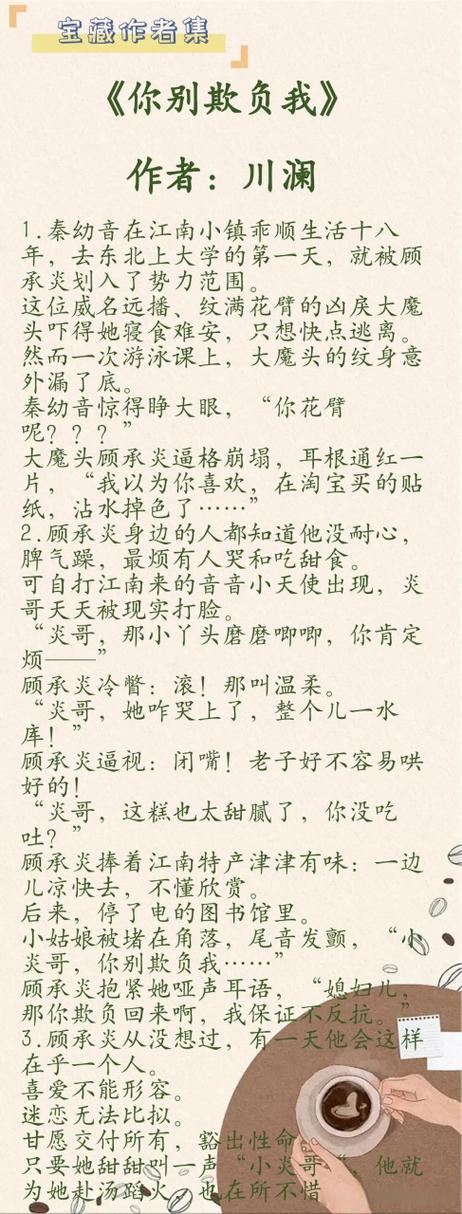 宝藏作者集
《你别欺负我》
作者：川澜
1.秦幼音在江南小镇乖顺生活十八
年，去东北上大学的第一天，就被顾
承炎划入了势力范围。
这位威名远播、纹满花臂的凶戾大魔
头吓得她寝食难安，只想快点逃离。
然而一次游泳课上，大魔头的纹身意
外漏了底。
秦幼音惊得睁大眼，“你花臂
呢？？？”
大魔头顾承炎逼格崩塌，耳根通红一
片，“我以为你喜欢，在淘宝买的贴
纸，沾水掉色了……”
2.顾承炎身边的人都知道他没耐心，
脾气躁，最烦有人哭和吃甜食。
可自打江南来的音音小天使出现，炎
哥天天被现实打脸。
“炎哥，那小丫头磨磨唧唧，你肯定
烦——”
顾承炎冷瞥：滚！那叫温柔。
“炎哥，她咋哭上了，整个儿一水
库！”
顾承炎逼视：闭嘴！老子好不容易哄
好的！
“炎哥，这糕也太甜腻了，你没吃
吐？”
顾承炎捧着江南特产津津有味：一边
儿凉快去，不懂欣赏。
后来，停了电的图书馆里。
小姑娘被堵在角落，尾音发颤，“小
炎哥，你别欺负我……”
顾承炎抱紧她哑声耳语，“媳妇儿，
那你欺负回来啊，我保证不反抗。”
3.顾承炎从没想过，有一天他会这样
在乎一个人。
喜爱不能形容。
迷恋无法比拟。
甘愿交付所有，豁出性命。
只要她甜甜叫一声“小炎哥“，他就
为她赴汤蹈火，也在所不惜